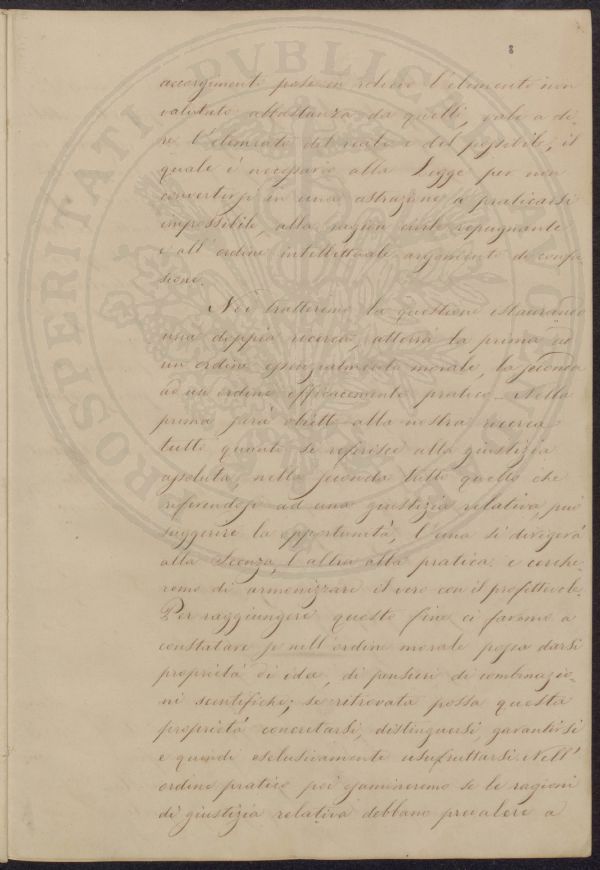 8
accorgimenti pose in rilievo l'elemento non
valutato abbastanza da quelli, vale a di-
re l'elemento del reale e del possibile; il
quale è necessario alla Legge per non
convertirsi in una astrazione a praticarsi
impossibile, alla ragion civile repugnante
e all'ordine intellettuale argomento di confu-
sione.
Noi tratteremo la questione istaurando
una doppia ricerca, atterrà la prima ad
un ordine essenzialmente morale, la seconda
ad un ordine efficacemente pratico. Nella
prima sarà obietto alla nostra ricerca
tutto quanto se referisce alla giustizia
assoluta, nella seconda tutto quello che
riferendosi ad una giustizia relativa, può
suggerire la opportunità, l'una si dirigerà
alla Scenza, l'altra alla pratica e cerche-
remo di armonizzare il vero con il profittevole.
Per raggiungere questo fine ci faremo a
constatare se nell'ordine morale possa darsi
proprietà di idee, di pensieri di combinazio-
ni scentifiche; se ritrovata possa questa
proprietà concretarsi, distinguersi, garantirsi
e quindi esclusivamente usufruttarsi. Nell'
ordine pratico poi esamineremo se le ragioni
di giustizia relativa debbano prevalere a
PROSPERITATI PVBLICAE